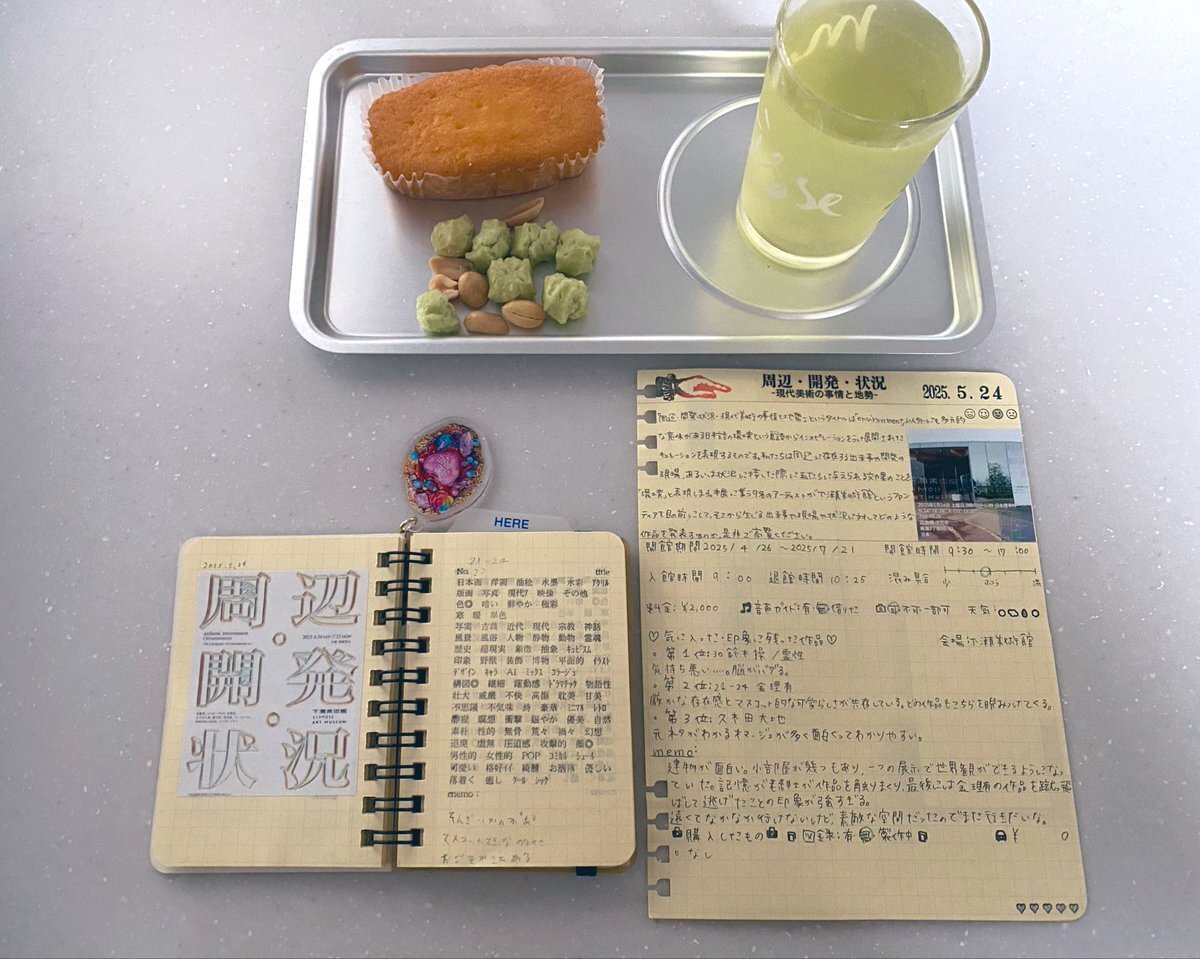 HERE
2025.5.24
周辺
開発
状況
下瀬美術館
SIMOSE
ART MUSEUM
21-24
No. title
日本画 洋画 油絵 水墨 水彩 アクリル
版画 写真 現代ア 映像 その他
色◎ 暗い 鮮やか 極彩
寒 暖 単色
写実 古典 近代 現代 宗教 神話
風景 風俗 人物 静物 動物 霊魂
歴史 超現実 象徴 抽象 キュビズム
印象 野獣 装飾 博物 平面的 イラスト
デザイン キャラ AI ミックス コラージュ
構図◎ 繊細 躍動感 ドラマチック 物語性
壮大 威厳 不快 高揚 耽美 甘美
不思議 不気味 詩 豪華 ミニマル レトロ
静寂 瞑想 衝撃 賑やか 優美 自然
素朴 性的 無骨 荒々 禍々 幻想
退廃 虚無 圧迫感 攻撃的 顔◎
男性的 女性的 POP コミカル シュール
可愛い 格好イイ 綺麗 お洒落 優しい
落着く 癒し クール シック
memo:
周辺・開発・状況
-現代美術の事情と地勢-
2025.5.24
周辺・開発・状況-現代美術の事情と地勢-というタイトルは「environment」以外にも多元的
な意味がある日本語の「環境」という単語からインスピレーションをうけ展開された
キュレーションを表現するものです。私たちは周辺に存在する出来事や開発の
現場、あるいは状況に接した際に私たちに与えられる効果のことを
「環境」と表現します。本展に集う9名のアーティストが下瀬美術館というフロン
ティアを目前にして、そこから生じる出来事や現場や状況に対してどのような
作品で発表するのか、是非ご高覧ください。
開館期間2025/4/26〜2025/7/21 開館時間 9:30〜17:00
入館時間 9:00 退館時間 10:25 混み具合
料金:¥2,000 音声ガイド:有 借りた 不可 一部可 天気:
♡気に入った・印象に残った作品♡ 会場:下瀬美術館
○第1位:30 鈴木操/霊性
気持ち悪い…。脳がバグる。
○第2位:21-24 金理有
厳かな存在感とマスコット的な可愛らしさが共存している。どの作品もこちらを睨みつけてくる。
○第3位:久木田大地
元ネタがわかるオマージュが多く面白くってわかりやすい。
memo:
建物が面白い。小部屋が幾つもあり、一つの展示で世界観ができるようになっ
ていた。記憶が老紳士が作品を触りまくり、最後には金理有の作品を
ばして逃げたことの印象が強すぎる。
遠くてなかなか行けないけど、素敵な空間だったのでまた行きたいな。
購入したもの 図録:有 製作中 ¥ 0
○なし